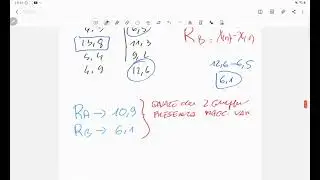 6,5
13,8 11,3
5,4 9,6
4,9 12,6
R_B = x(n) - x(1)
12,6 - 6,5
6,1
R_A → 10,9
R_B → 6,1
QUALE dei 2 Gruppi
PRESENTA MAGG. VAR